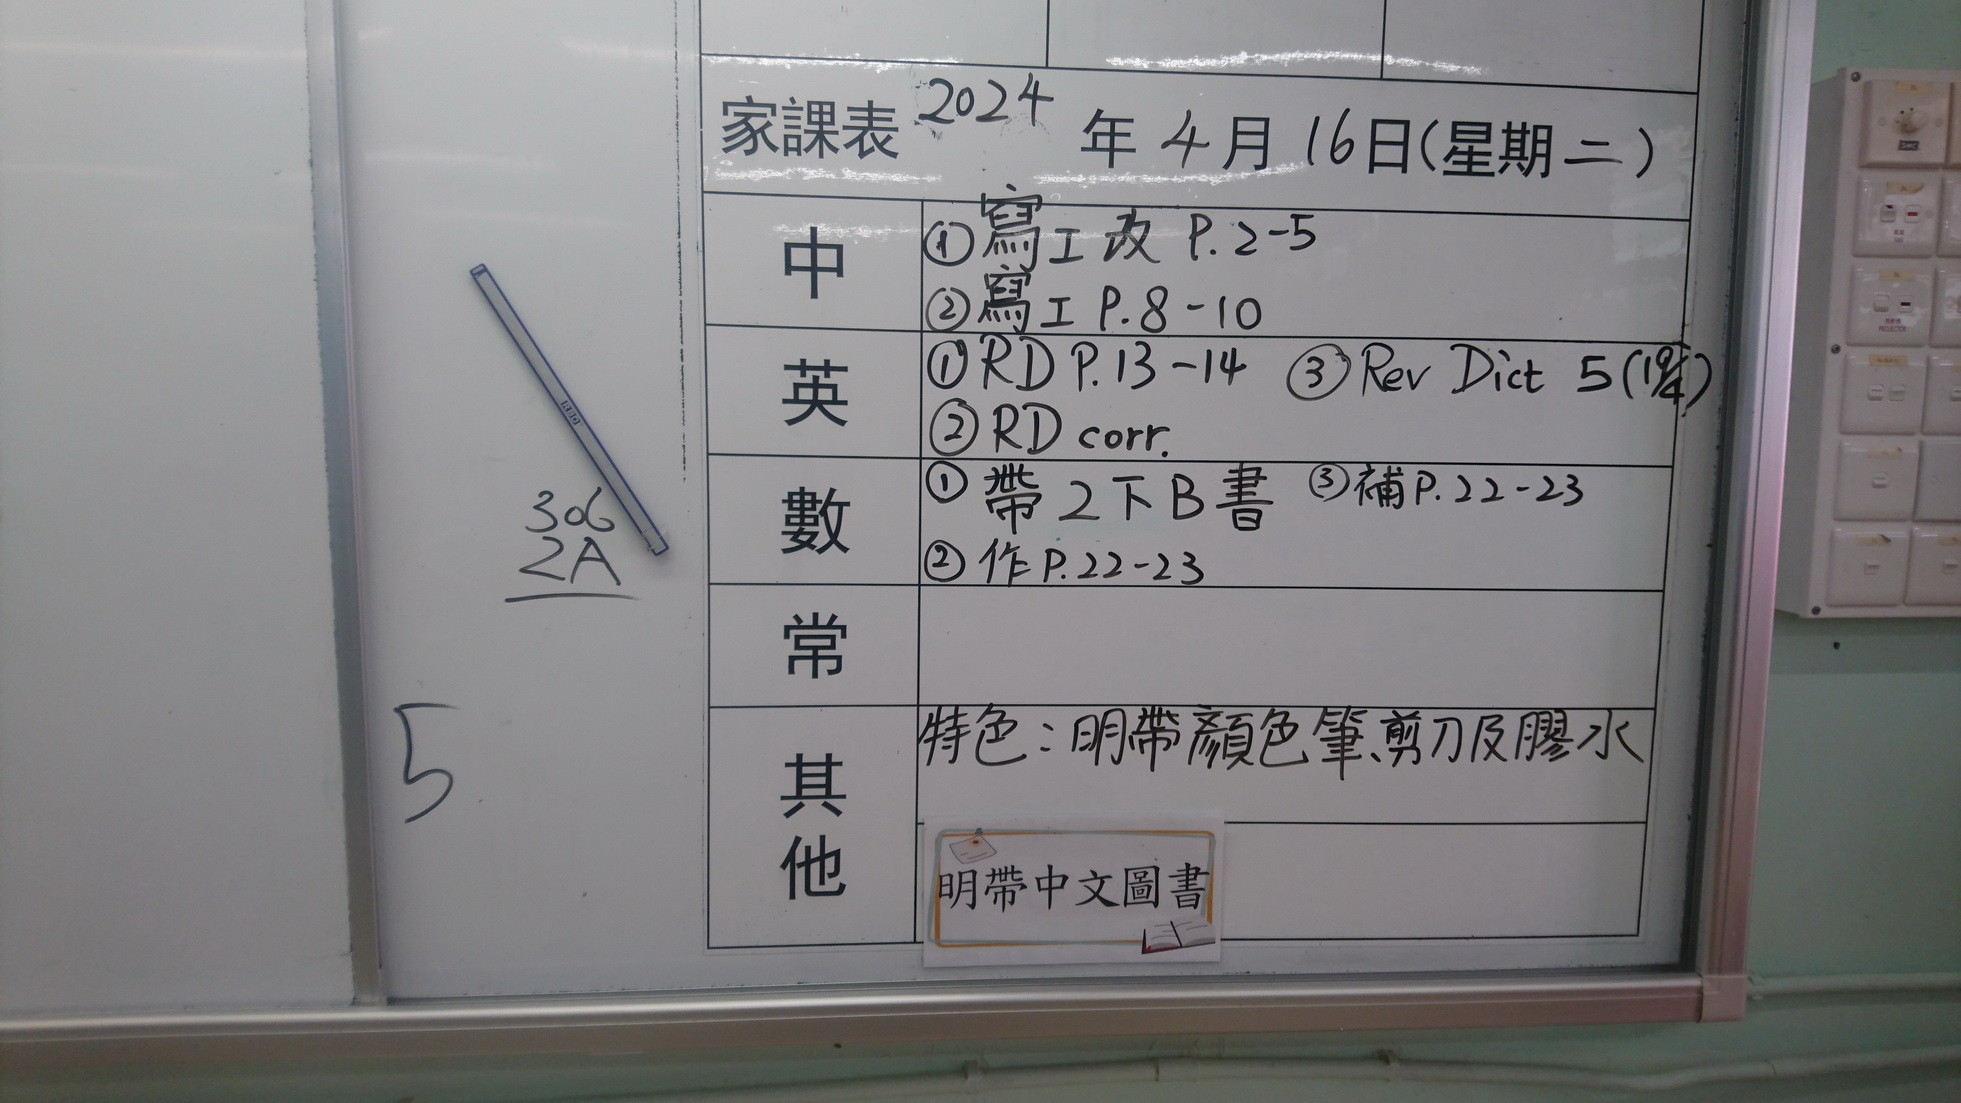 家課表 2024 年 4 月 16 日(星期二)
中
① 寫工改 P.2-5
② 寫工 P.8-10
英
① RD P.13-14 ③ Rev Dict 5 (19/4)
② RD corr.
數
① 帶2下B書 ③ 補P.22-23
② 作P.22-23
常
其他
特色：明帶顏色筆、剪刀及膠水
明帶中文圖書
306
2A
5